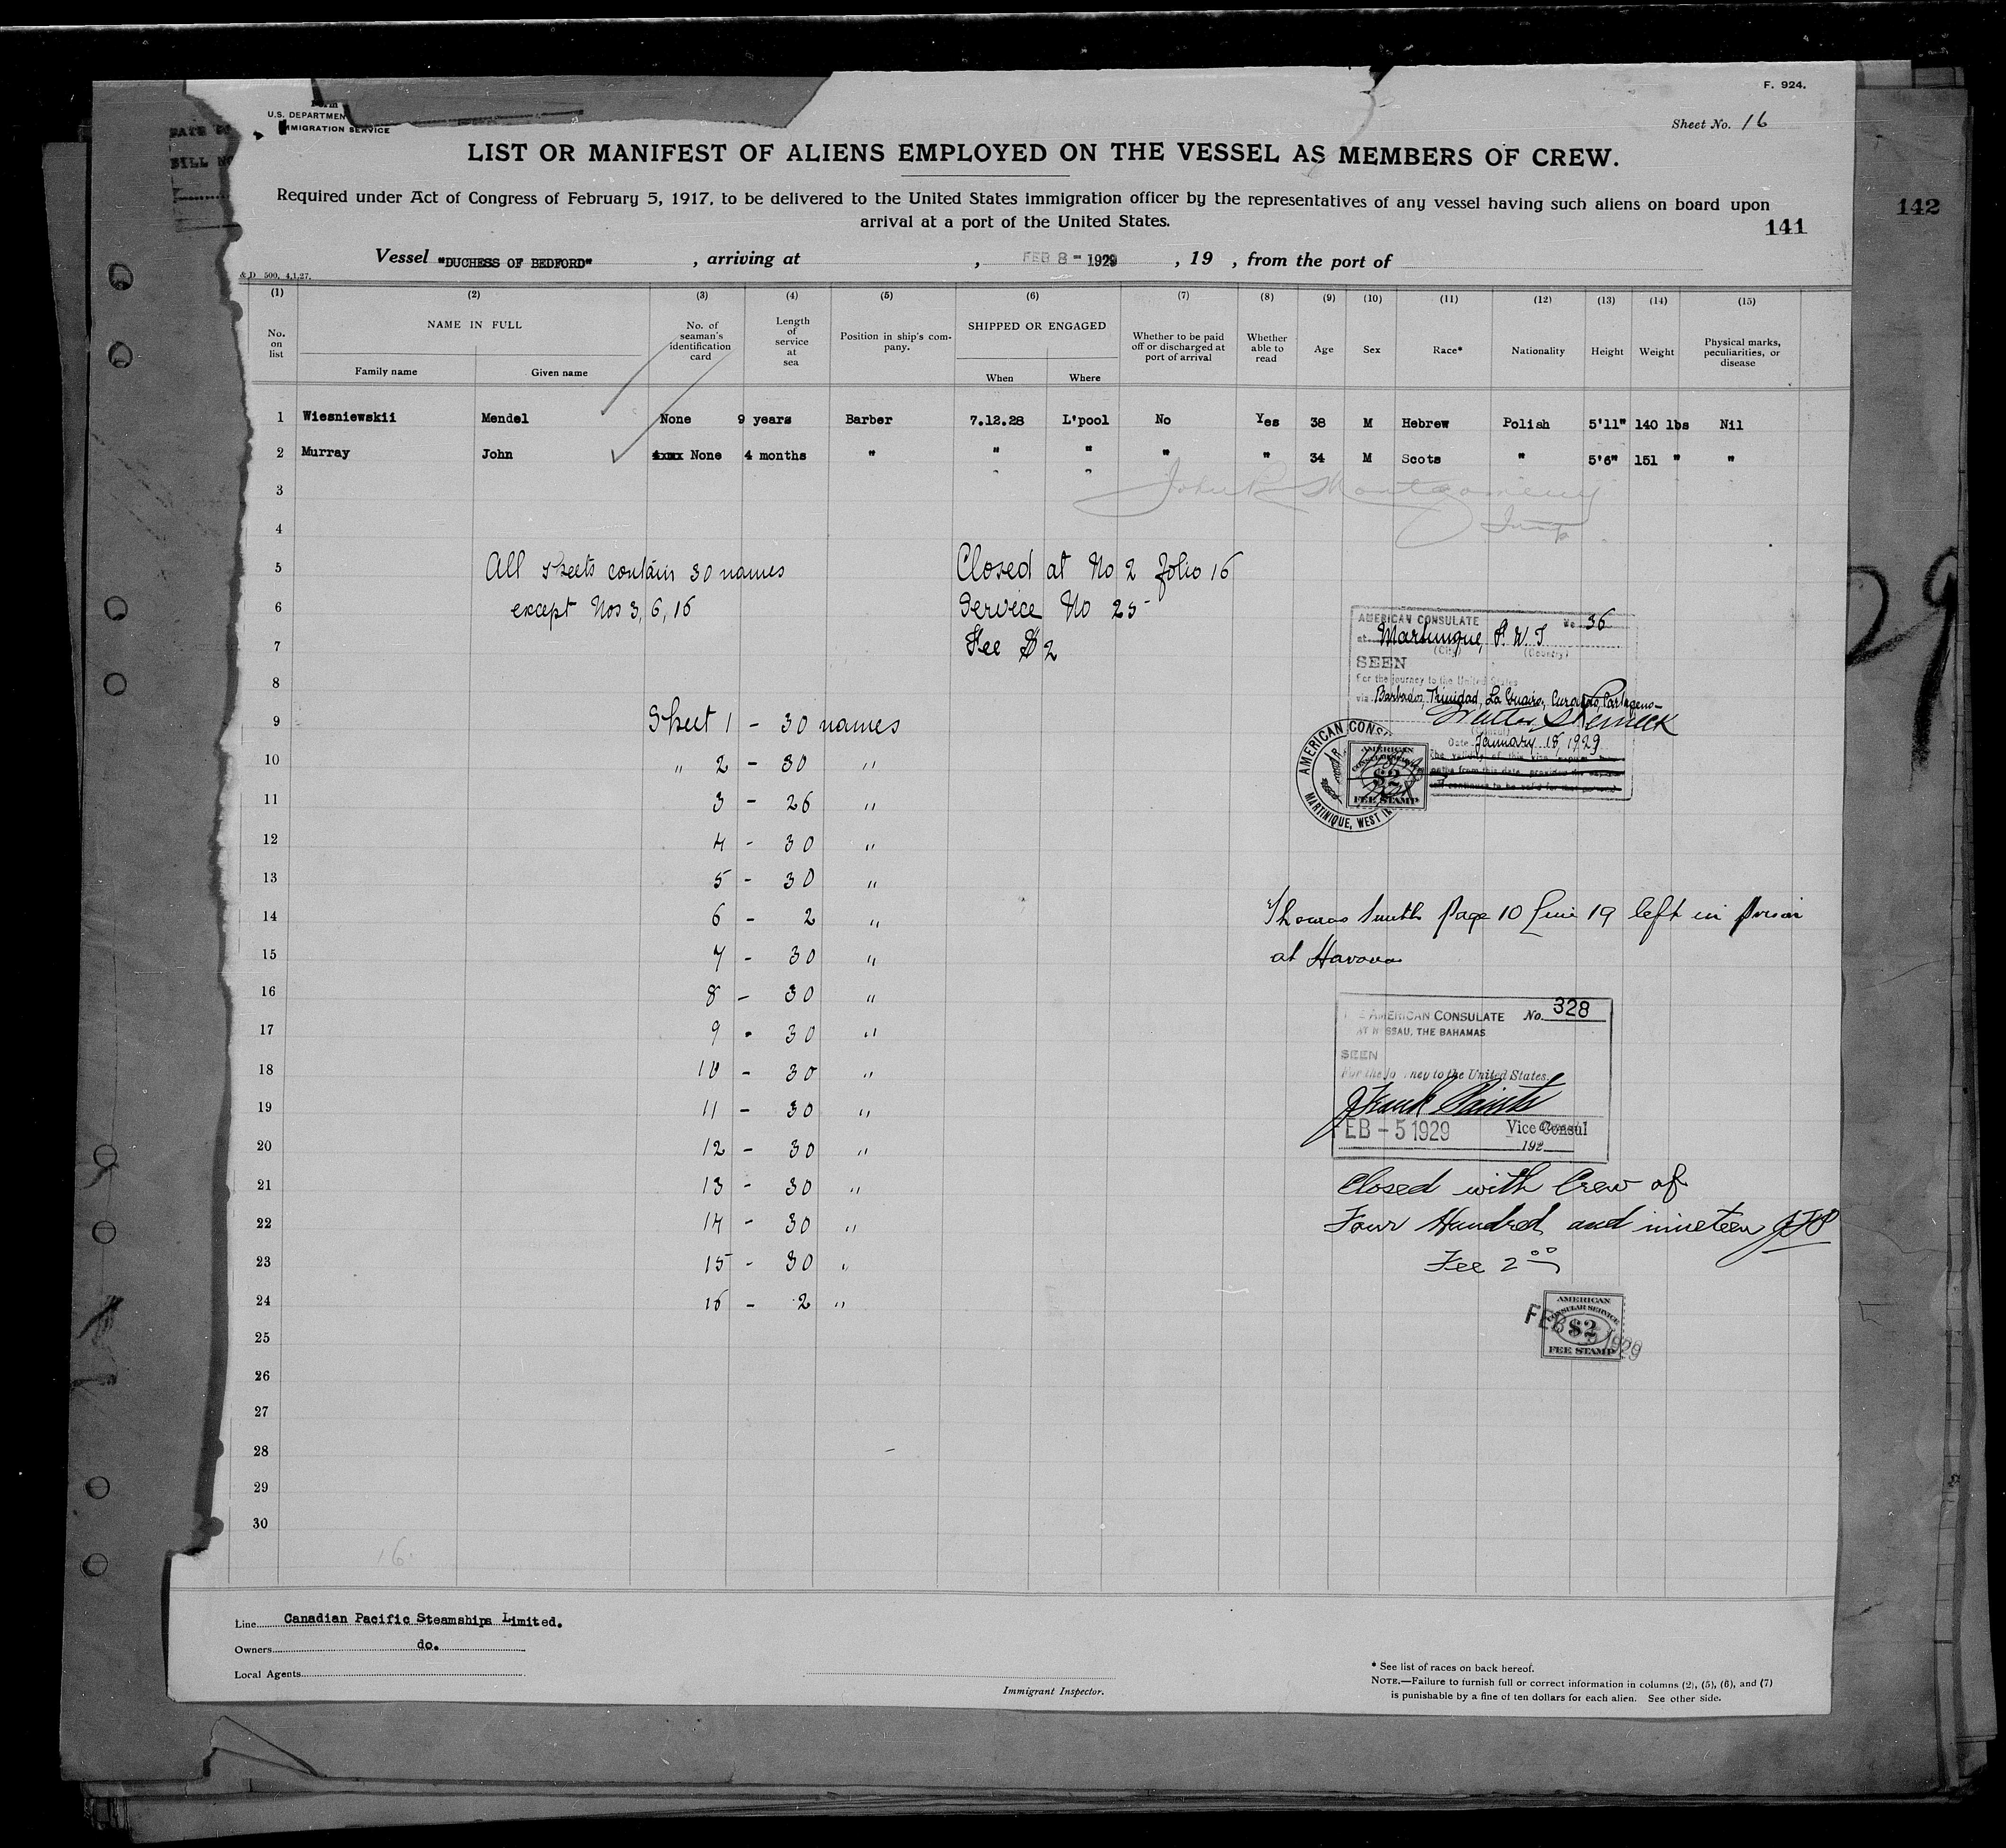 F. 924.
Form
U.S. DEPARTMEN
IMMIGRATION SERVICE
Sheet No. 16
LIST OR MANIFEST OF ALIENS EMPLOYED ON THE VESSEL AS MEMBERS OF CREW.
Required under Act of Congress of February 5, 1917, to be delivered to the United States immigration officer by the representatives of any vessel having such aliens on board upon
arrival at a port of the United States.
141
142
Vessel "DUCHESS OF BEDFORD" , arriving at , FEB 8 - 1929 , 19 , from the port of
& D 500. 4.1.27.
(1) (2) (3) (4) (5) (6) (7) (8) (9) (10) (11) (12) (13) (14) (15)
No. on list
NAME IN FULL
Family name
Given name
No. of seaman's identification card
Length of service at sea
Position in ship's company.
SHIPPED OR ENGAGED
When
Where
Whether to be paid off or discharged at port of arrival
Whether able to read
Age
Sex
Race*
Nationality
Height
Weight
Physical marks, peculiarities, or disease
1 Wiesniewskii Mendel None 9 years Barber 7.12.28 L'pool No Yes 38 M Hebrew Polish 5'11" 140 lbs Nil
2 Murray John None 4 months " " " " " 34 M Scots " 5'6" 151 " "
3
John R Montgomery
4
Insp
5 All sheets contain 30 names Closed at No 2 folio 16
6 except Nos 3, 6, 16 Service No 25
7 Fee $2
AMERICAN CONSULATE No 36
at Martinique, F. W. I.
(City) (Country)
SEEN
For the journey to the United States
via Barbados, Trinidad, La Guaira, Curacao, Cartagena
(Consul)
Date January 18, 1929
AMERICAN CONS
MARTINIQUE, WEST IN
AMERICAN
$2
FEE STAMP
8
9 Sheet 1 - 30 names
10 " 2 - 30 "
11 3 - 26 "
12 4 - 30 "
13 5 - 30 "
14 6 - 2 "
15 7 - 30 "
16 8 - 30 "
17 9 - 30 "
18 10 - 30 "
19 11 - 30 "
20 12 - 30 "
21 13 - 30 "
22 14 - 30 "
23 15 - 30 "
24 16 - 2 "
25
26
27
28
29
30
Thomas Smith page 10 line 19 left in prison
at Havana
AMERICAN CONSULATE No. 328
AT N SSAU, THE BAHAMAS
SEEN
For the jo ney to the United States.
FEB - 5 1929 Vice Consul
192
Closed with Crew of
Four Hundred and nineteen
Fee 2 00
AMERICAN
CONSULAR SERVICE
$2
FEE STAMP
FEB 5 1929
16
Line Canadian Pacific Steamships Limited.
Owners do.
Local Agents
Immigrant Inspector.
* See list of races on back hereof.
NOTE.—Failure to furnish full or correct information in columns (2), (5), (6), and (7)
is punishable by a fine of ten dollars for each alien. See other side.